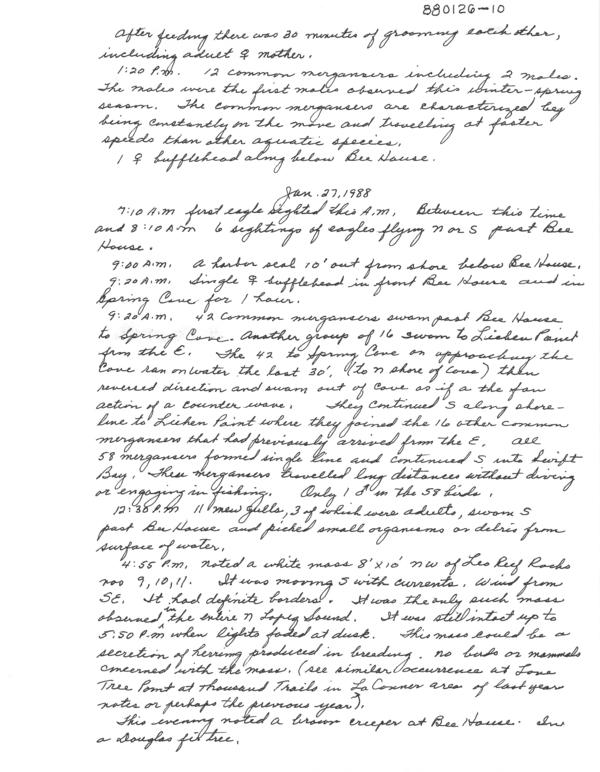 880126-10
After feeding there was 30 minutes of grooming each other,
including adult ♀ mother.
1:20 P.M. 12 common mergansers including 2 males.
The males were the first males observed this winter-spring
season. The common mergansers are characterized by
being constantly on the move and travelling at faster
speeds than other aquatic species.
1 ♀ bufflehead along below Bee House.
Jan. 27, 1988
7:10 A.M first eagle sighted this A.M. Between this time
and 8:10 A.M 6 sightings of eagles flying N or S past Bee
House.
9:00 A.M. A harbor seal 10' out from shore below Bee House.
9:20 A.M. Single ♀ bufflehead in front Bee House and in
Spring Cove for 1 hour.
9:20 A.M. 42 Common mergansers swam past Bee House
to Spring Cove. Another group of 16 swam to Lichen Point
from the E. The 42 to Spring Cove on approaching the
Cove ran on water the last 30', (to N shore of Cove) then
reversed direction and swam out of Cove as if a the fan
action of a counter wave. They continued S along shore-
line to Lichen Point where they joined the 16 other common
mergansers that had previously arrived from the E. All
58 mergansers formed single line and continued S into Swift
Bay. These mergansers travelled long distances without diving
or engaging in fishing. Only 1 ♂ in the 58 birds.
12:30 P.M 11 mew gulls, 3 of which were adults, swam S
past Bee House and picked small organisms or debris from
surface of water.
4:55 P.M. noted a white mass 8' x 10' NW of Leo Reef Rocks
nos 9, 10, 11. It was moving S with currents. Wind from
SE. It had definite borders. It was the only such mass
observed in the entire N Lopez Sound. It was still intact up to
5:50 P.M when lights faded at dusk. This mass could be a
secretion of herring produced in breeding. no birds or mammals
concerned with the mass. (see similar occurrence at Lone
Tree Point at Thousand Trails in La Conner area of last year
notes or perhaps the previous year).
This evening noted a brown creeper at Bee House. In
a Douglas fir tree.